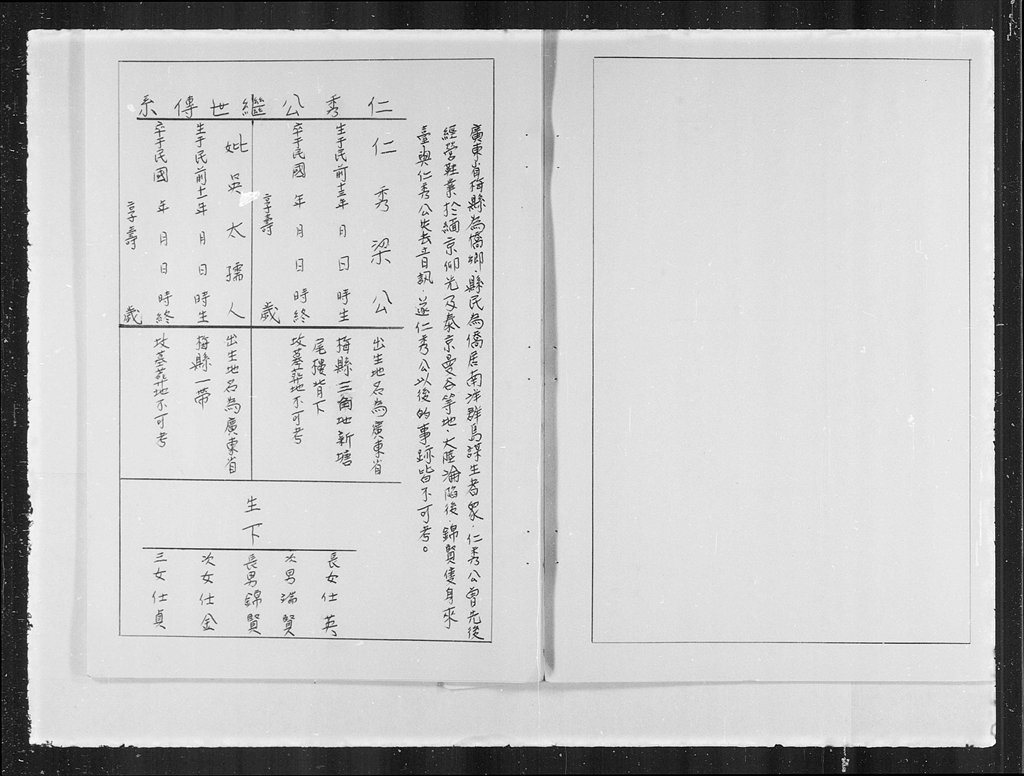 廣東省梅縣為僑鄉，縣民為僑居南洋群島謀生者眾，仁秀公曾先後
經營鞋業於緬京仰光及泰京曼谷等地，大陸淪陷後，錦賢隻身來
臺與仁秀公失去音訊，遂仁秀公以後的事跡皆不可考。
仁秀公繼世傳系
仁秀梁公
生于民前十三年 月 日 時生
卒于民國 年 月 日 時終
享壽 歲
妣吳太孺人
生于民前十一年 月 日 時生
卒于民國 年 月 日 時終
享壽 歲
出生地名為廣東省
梅縣三角地新塘
尾樓背下
坟墓葬地不可考
出生地名為廣東省
梅縣一帶
坟墓葬地不可考
生下
長女仕英
次男瑞賢
長男錦賢
次女仕金
三女仕貞